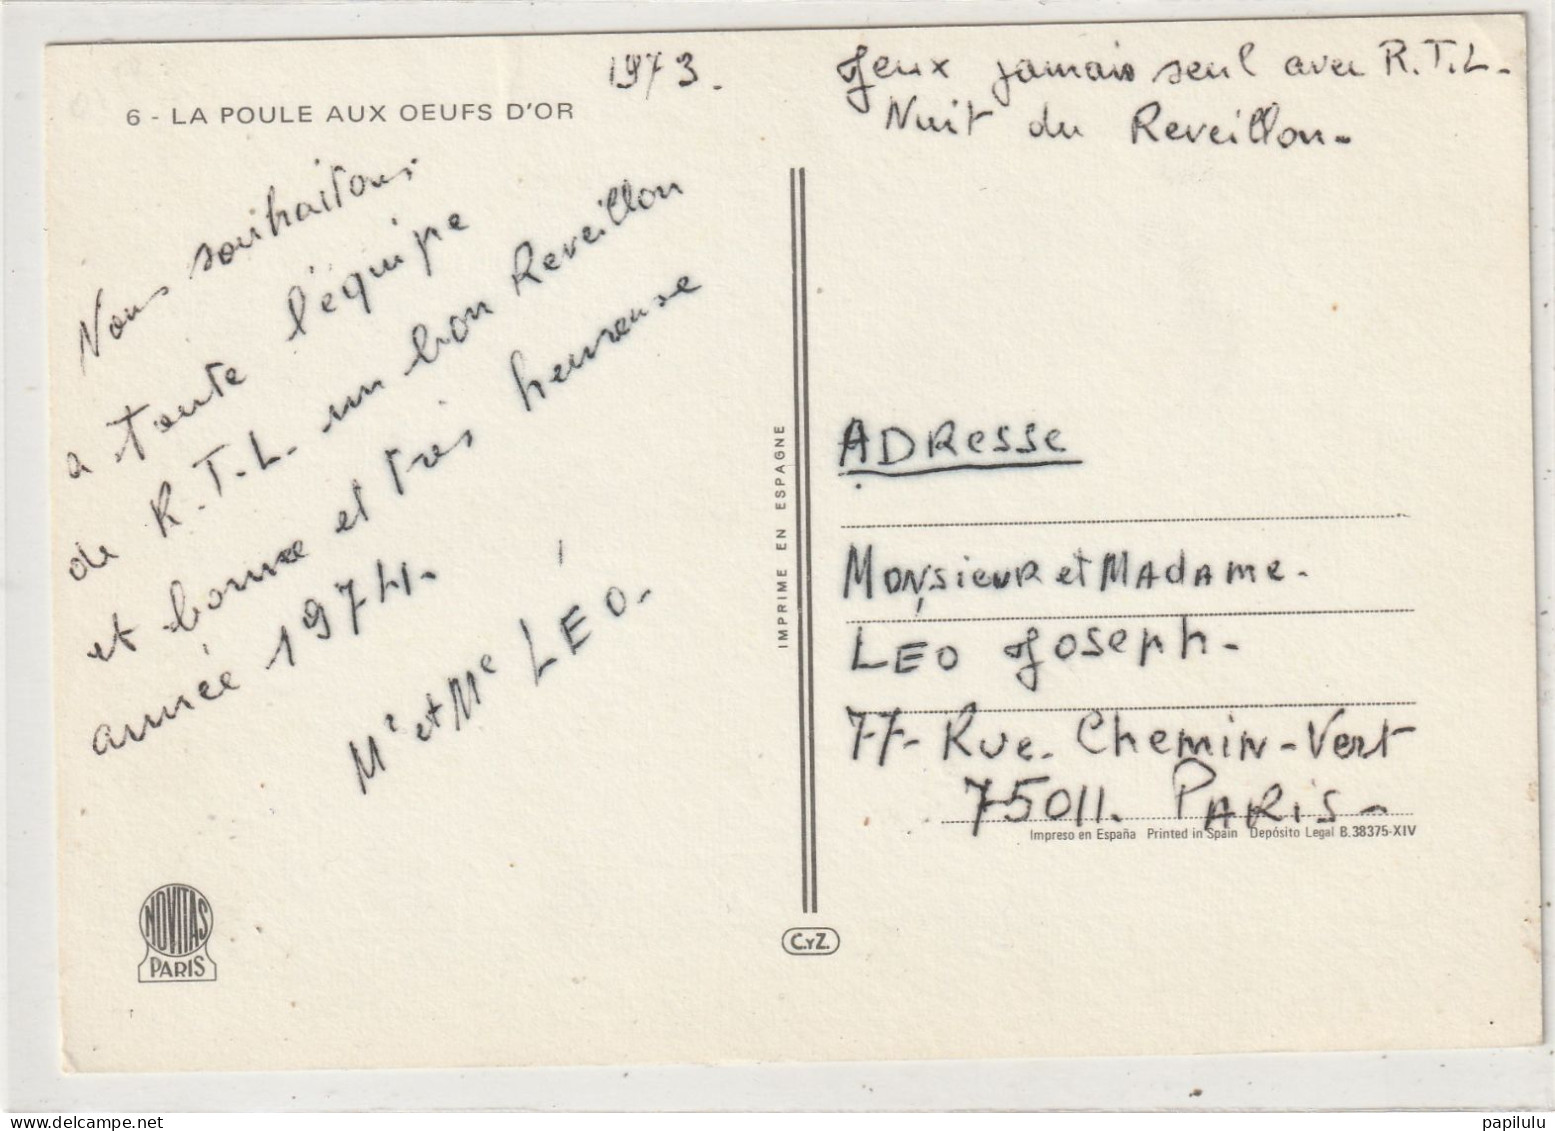 1973.
6 - LA POULE AUX OEUFS D'OR
Nous souhaitons
a toute l'équipe
de R.T.L. un bon Reveillon
et bonne et très heureuse
année 1974.
Mr et Me LÉO.
NOVITAS
PARIS
IMPRIME EN ESPAGNE
C.YZ.
Jeux jamais seul avec R.T.L.
Nuit du Reveillon.
ADResse
MONsieuR et MAdAme.
LEO Joseph.
77. Rue. Chemin-Vert
75011. PARIS.
Impreso en España Printed in Spain Depósito Legal B.38375-XIV
papilulu